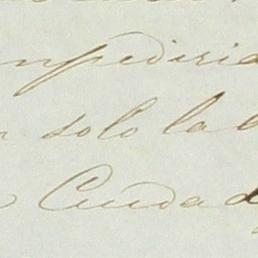 mpediria
solo la
Ciudad